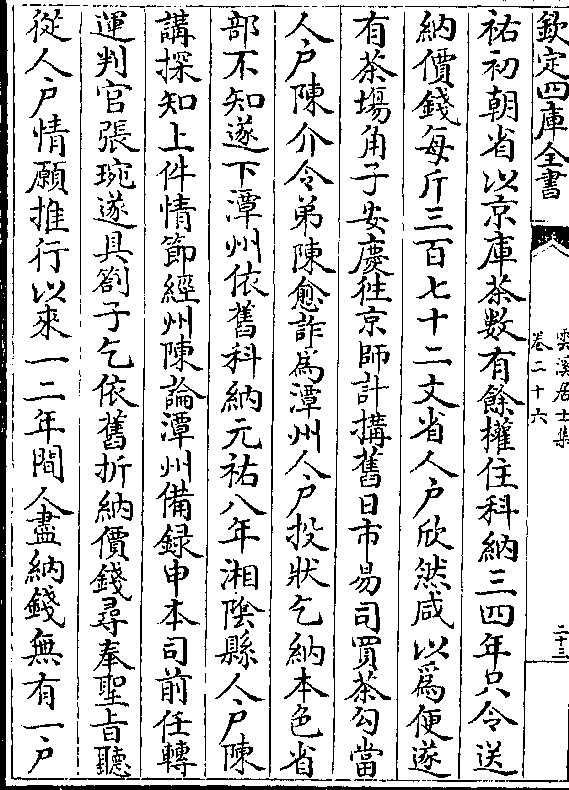 欽定四庫全書
雲溪居士集
卷二十六
二十三
祐初朝省以京庫茶數有餘權住科納三四年只令送
納價錢每斤三百七十二文省人户欣然咸以爲便遂
有茶場角子安慶徃京師計搆舊日市易司買茶勾當
人户陳介令弟陳愈詐爲潭州人户投狀乞納本色省
部不知遂下潭州依舊科納元祐八年湘陰縣人户陳
講探知上件情節經州陳論潭州備録申本司前任轉
運判官張琬遂具劄子乞依舊折納價錢尋奉聖旨聽
從人户情願推行以來一二年間人盡納錢無有一户